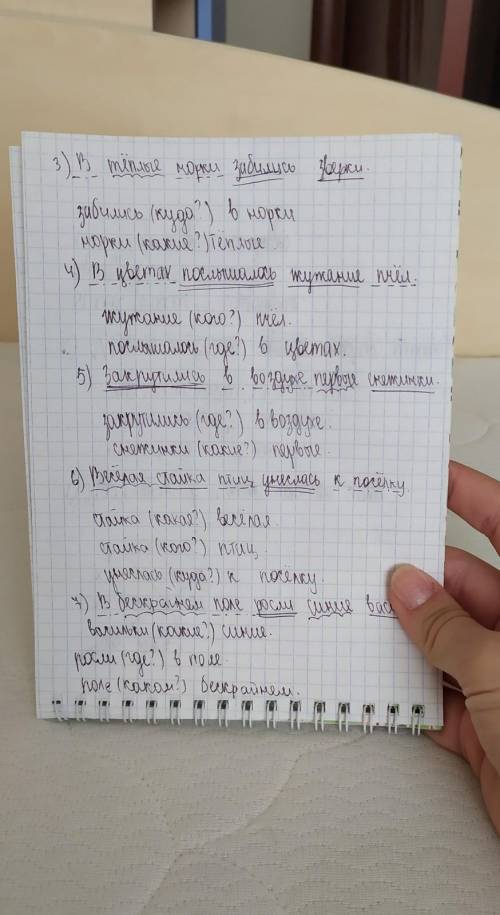 3) В тёплые норки забились зверки.
забились (куда?) в норки
норки (какие?) тёплые
4) В цветах послышалось жужание пчёл.
жужание (кого?) пчёл.
послышалось (где?) в цветах.
5) Закрутились в воздухе первые снежинки.
закрутились (где?) в воздухе.
снежинки (какие?) первые.
6) Весёлая стайка птиц унеслась к посёлку.
стайка (какая?) весёлая.
стайка (кого?) птиц.
унеслась (куда?) к посёлку.
7) В бескрайнем поле росли синие вас
васильки (какие?) синие.
росли (где?) в поле.
поле (каком?) бескрайнем.